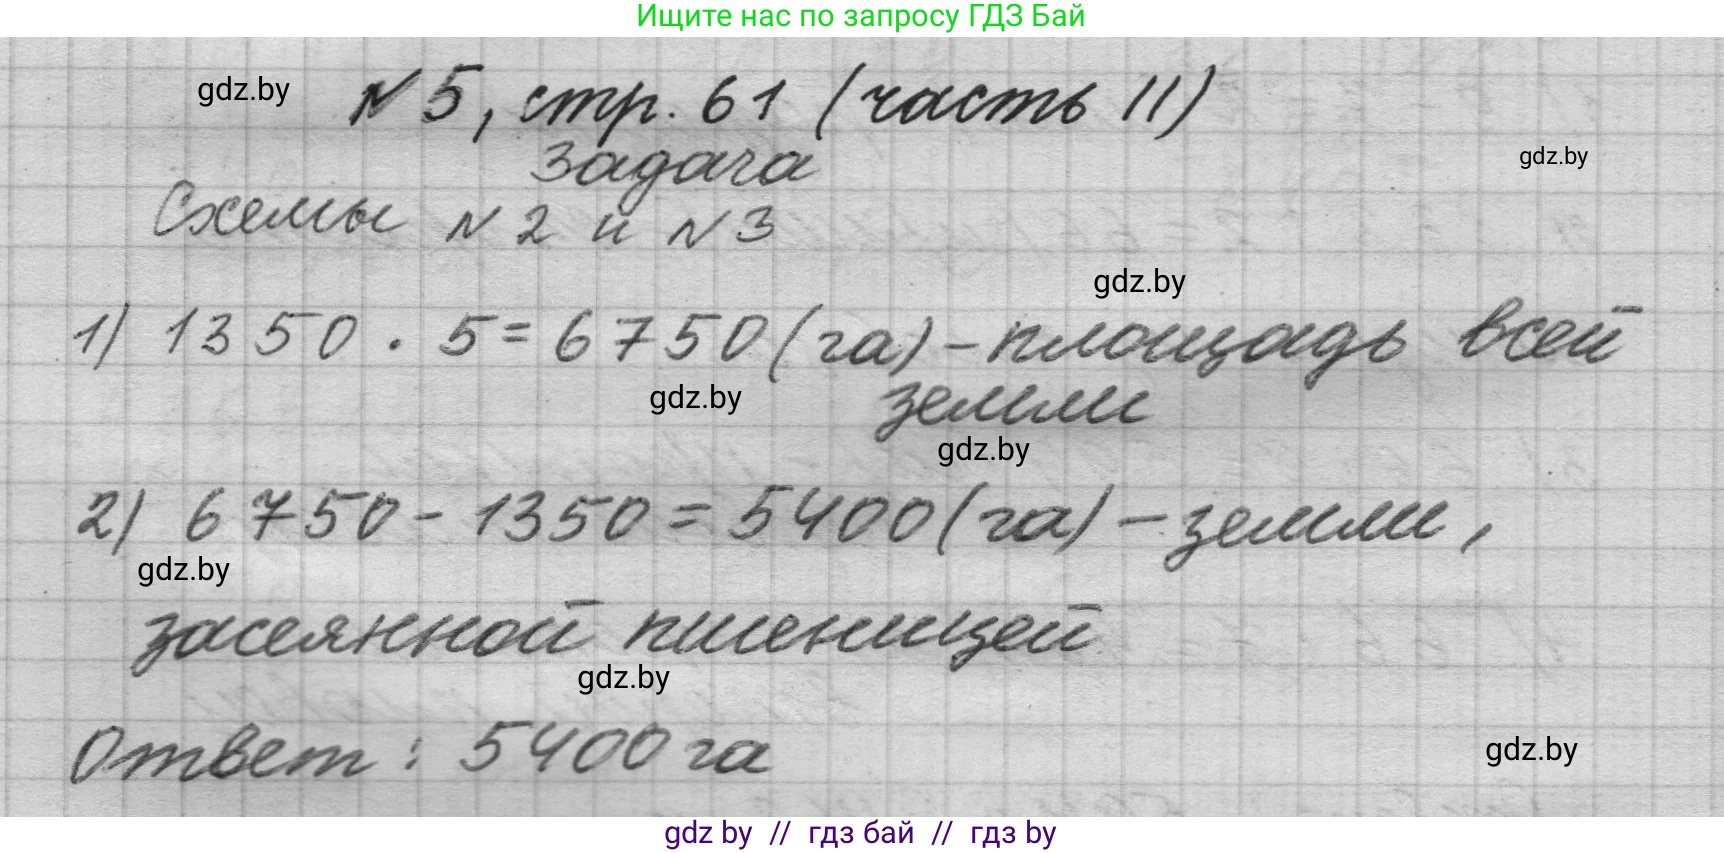 Ищите нас по запросу ГДЗ Бай
gdz.by
№5, стр. 61 (часть II)
gdz.by
Задача
Схемы №2 и №3
gdz.by
1) 1350 · 5 = 6750 (га) – площадь всей
gdz.by
земли
gdz.by
2) 6750 - 1350 = 5400 (га) – земли,
gdz.by
засеянной пшеницей
gdz.by
Ответ: 5400 га
gdz.by
gdz by // гдз бай // гдз by